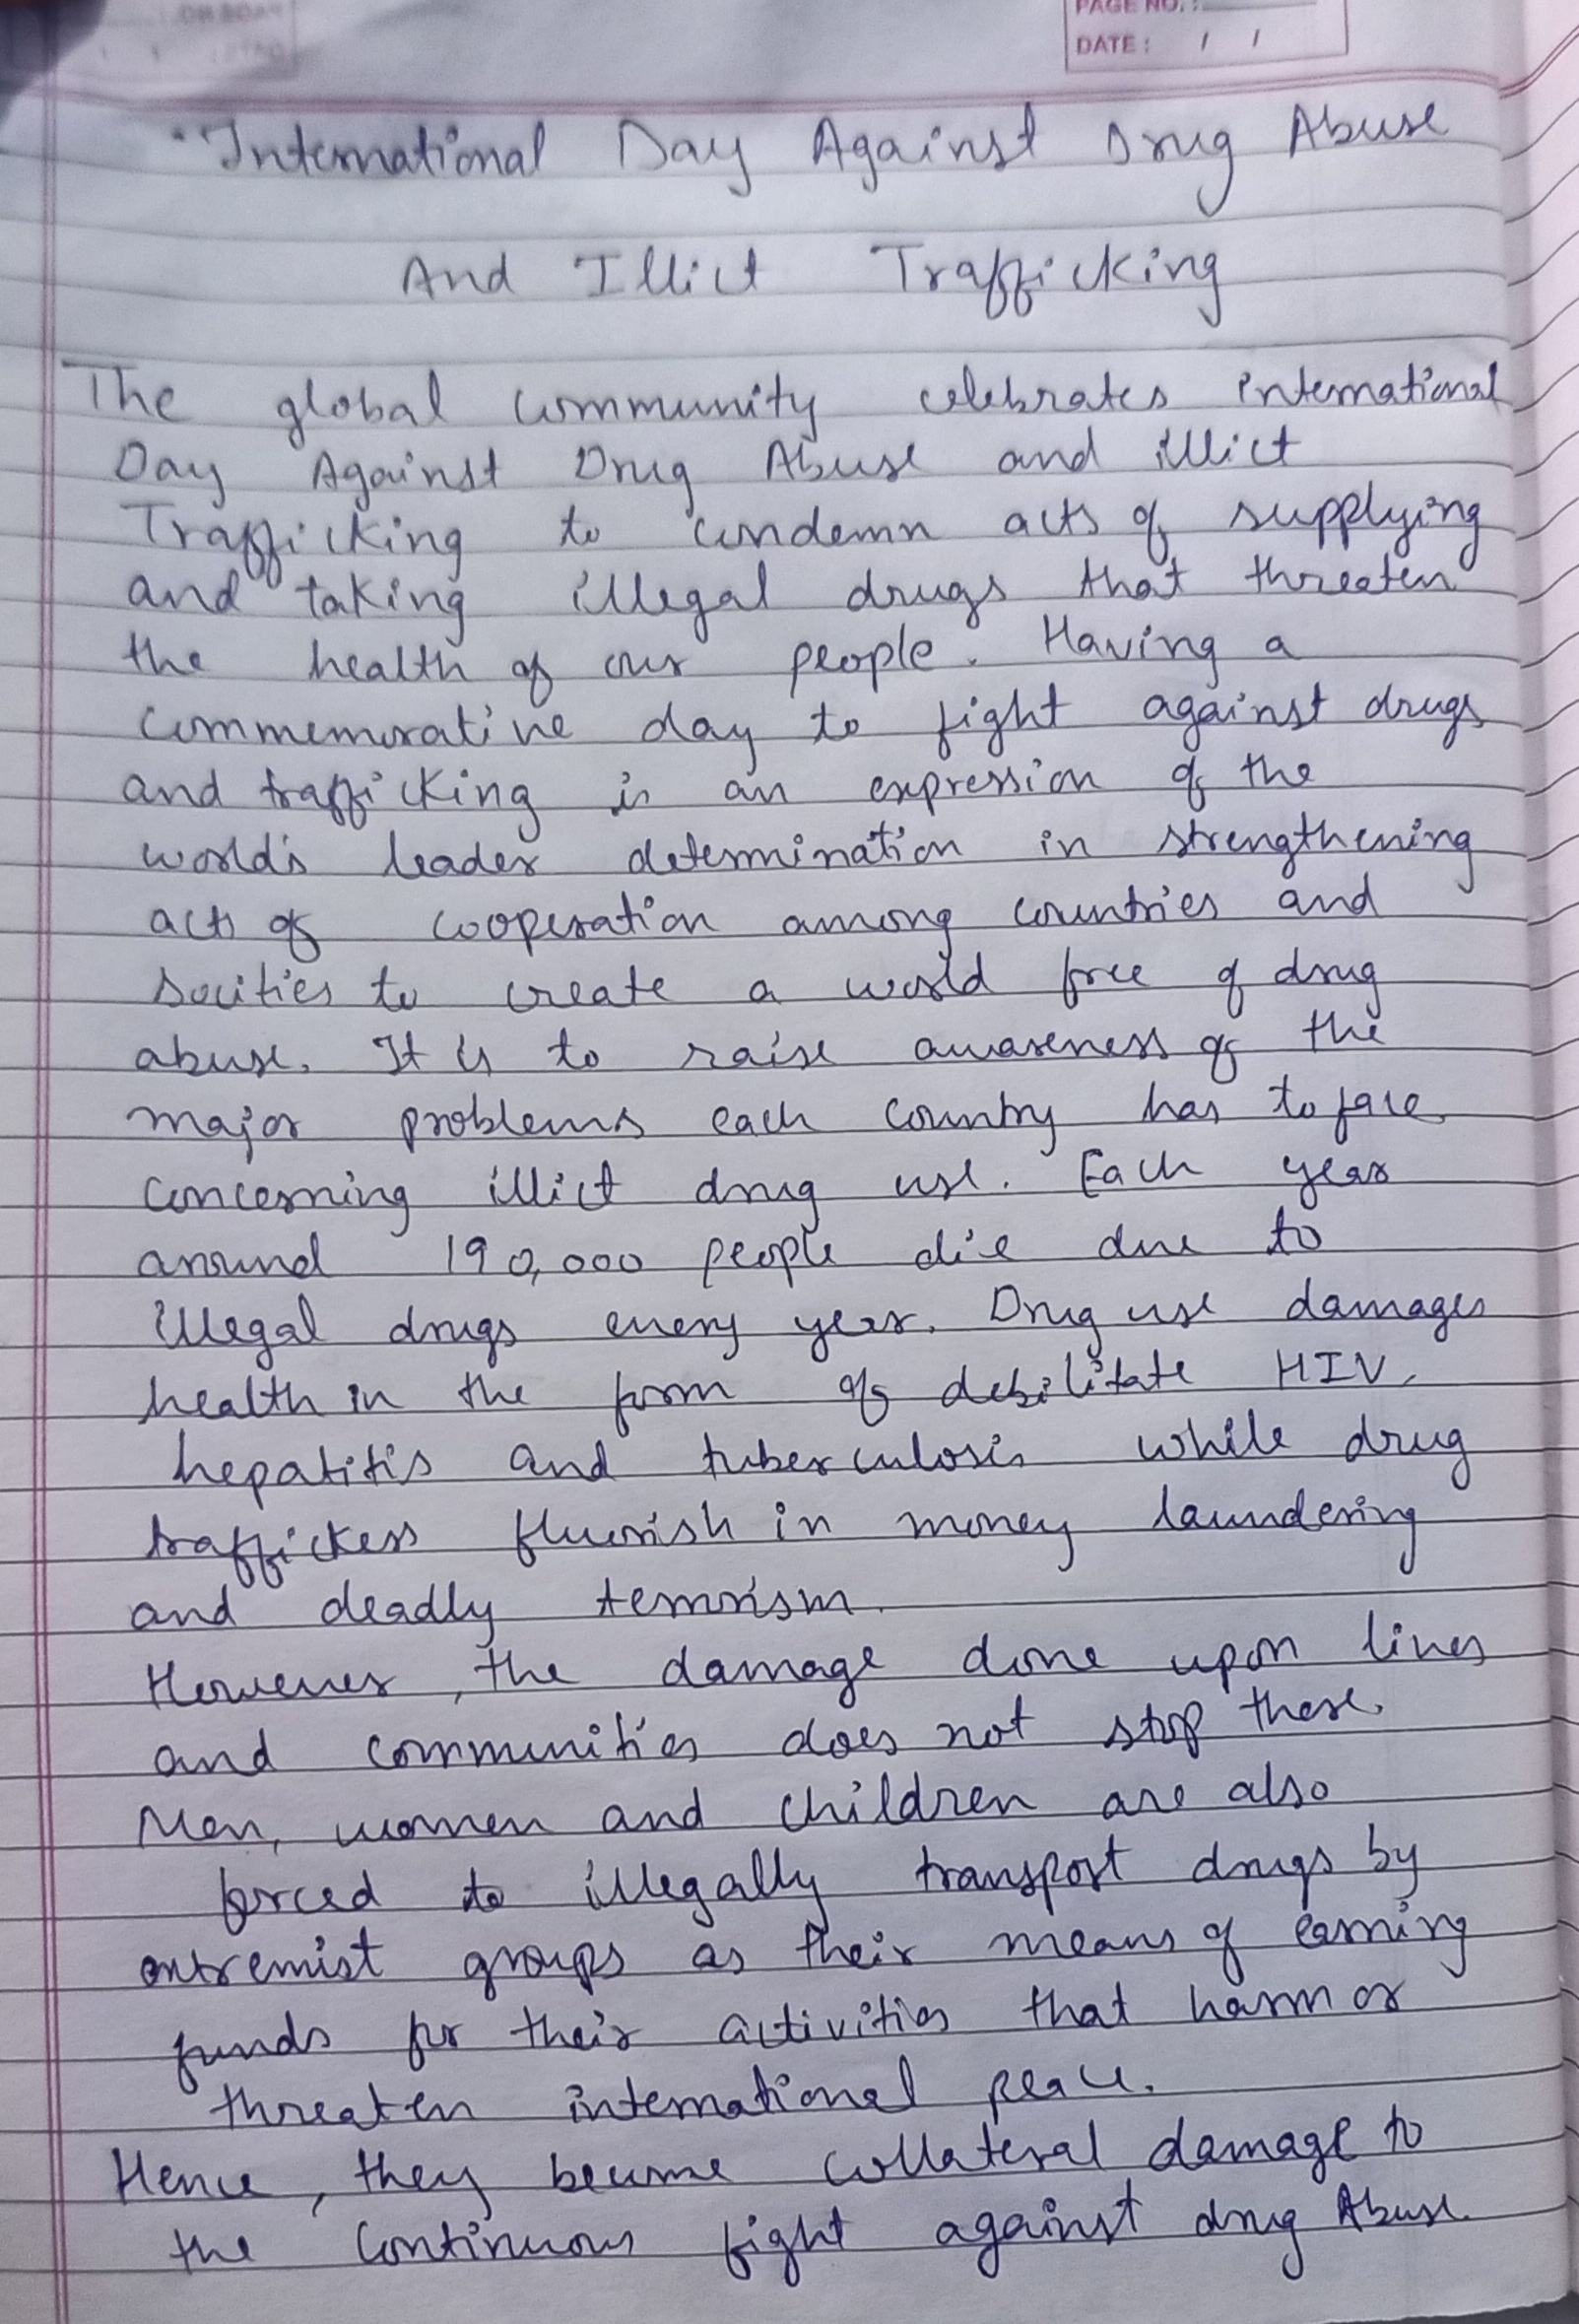 PAGE NO.:
DATE: / /
"International Day Against Drug Abuse
And Illict Trafficking
The global community celebrates international
Day Against Drug Abuse and illict
Trafficking to condemn acts of supplying
and taking illegal drugs that threaten
the health of our people. Having a
commemorative day to fight against drugs
and trafficking is an expression of the
world's leader determination in strengthening
acts of cooperation among countries and
socities to create a world free of drug
abuse. It is to raise awareness of the
major problems each country has to face
concerning illict drug use. Each year
around 190,000 people die due to
illegal drugs every year. Drug use damages
health in the form of debilitate HIV,
hepatitis and tuberculosis while drug
traffickers fluorish in money laundering
and deadly terrorism.
However, the damage done upon lives
and communities does not stop there.
Men, women and children are also
forced to illegally transport drugs by
extremist groups as their means of earning
funds for their activities that harm or
threaten international peace.
Hence, they become collateral damage to
the continuous fight against drug Abuse.